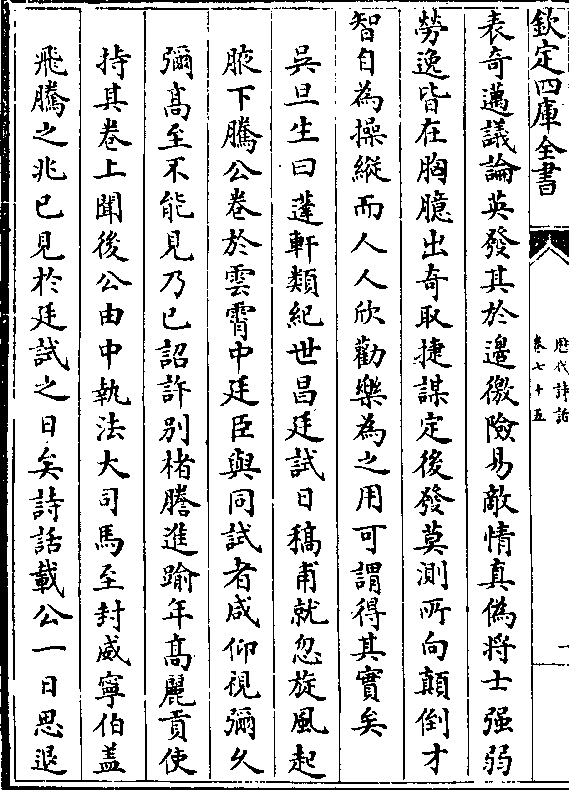 欽定四庫全書
歷代詩話
卷七十五
表奇邁議論英發其於邊徼險易敵情真偽將士强弱
勞逸皆在胸臆出奇取捷謀定後發莫測所向顛倒才
智自為操縱而人人欣勸樂為之用可謂得其實矣
吳旦生曰蓬軒類紀世昌廷試日稿甫就忽旋風起
腋下騰公卷於雲霄中廷臣與同試者咸仰視彌久
彌高至不能見乃已詔許别楮謄進踰年高麗貢使
持其卷上聞後公由中執法大司馬至封威寧伯蓋
飛騰之兆已見於廷試之日矣詩話載公一日思退